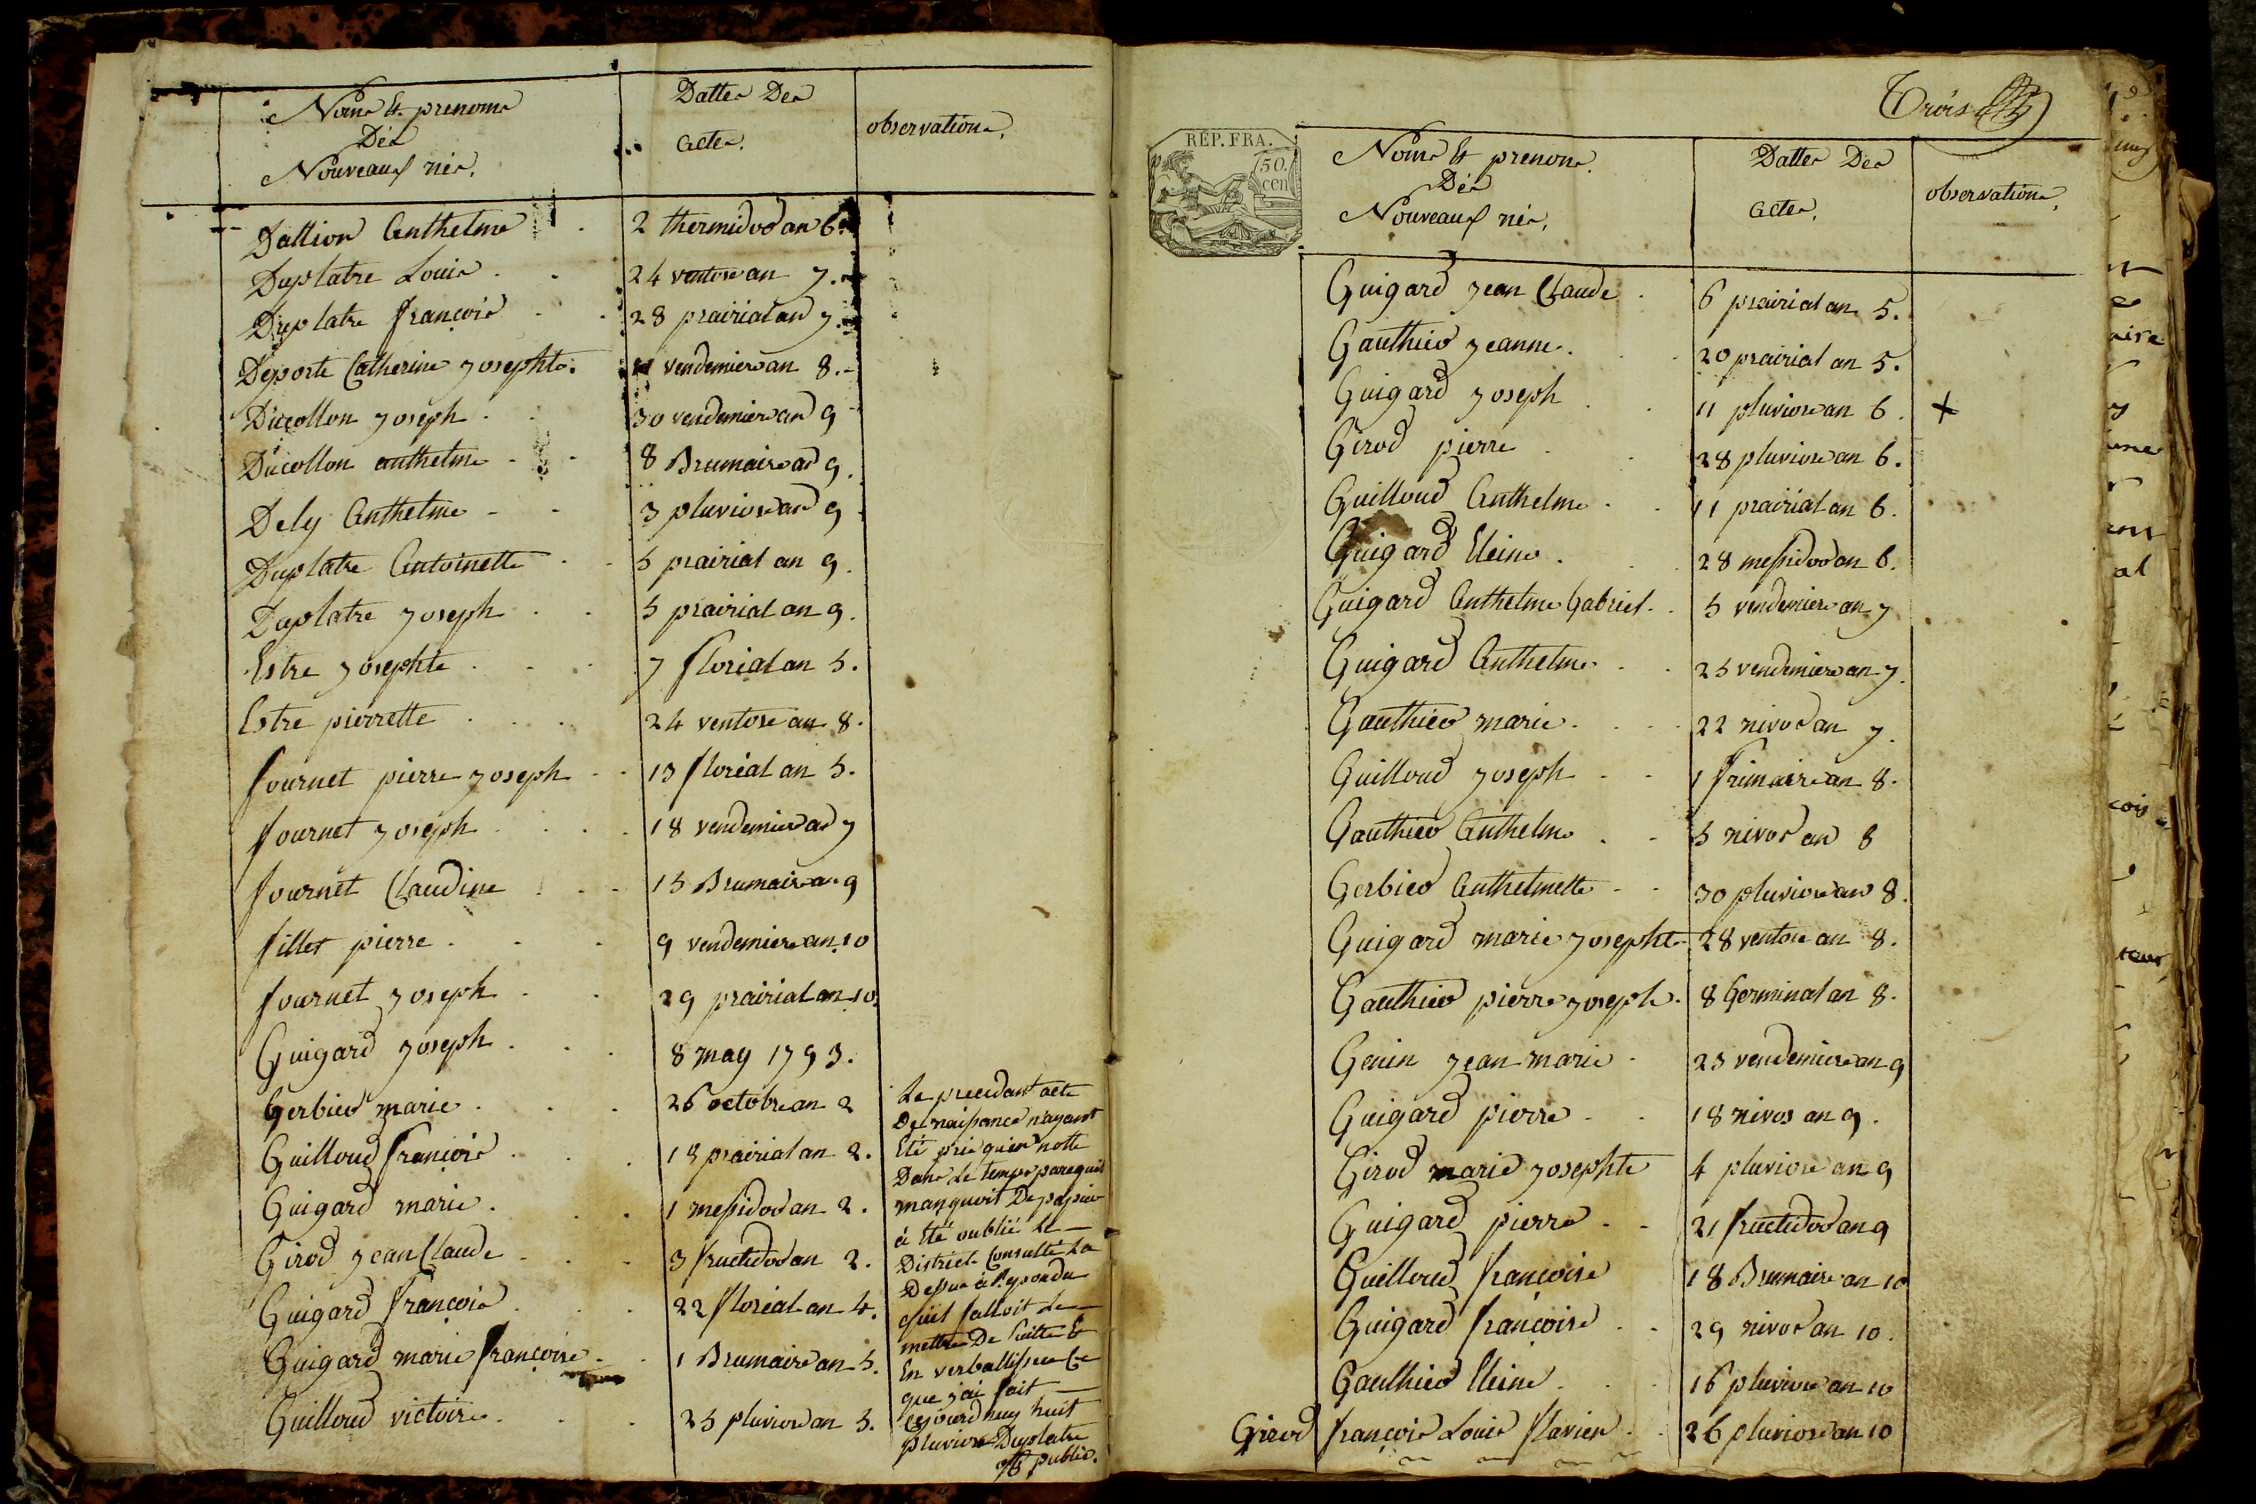 Noms Et prenoms
Dés
Nouveaux nés.
Dattes Des
actes.
observations.
Dallion Anthelme 2 thermidor an 6.
Duplatre Louis 24 ventose an 7.
Duplatre françois 28 prairial an 7.
Deporte Catherine josephte. vendemiere an 8.
Ducollon joseph 30 vendemiere an 9
Ducollon anthelme 8 Brumaire an 9.
Dely Anthelme 3 pluviose an 9
Duplatre Antoinette 5 prairial an 9.
Duplatre joseph 5 prairial an 9.
Estre josephte 7 floréal an 5.
Estre pierrette 24 ventose an 8.
fournet pierre joseph 13 floréal an 5.
fournet joseph 18 vendemiere an 7
fournet Claudine 15 Brumaire an 9
fillet pierre 9 vendemiere an 10
fournet joseph 29 prairial an 10.
Guigard joseph 8 may 1793.
Gerbier marie 26 octobre an 2
Guilloud françois 18 prairial an 2.
Guigard marie 1 messidor an 2.
Girod jean Claude 3 fructidor an 2.
Guigard françois 22 floréal an 4.
Guigard marie françoise 1 Brumaire an 5.
Guilloud victoire 25 pluviose an 5.
Le precedant acte
De naissance n'ayant
Eté pris qu'en notte
Dans le temps parcequil
manquoit De papier
à Eté oublié le
District Consulté la
Dessus à Repondu
qu'il falloit le
mettre De Suitte Et
En verballisser Ce
que j'ai fait
Cejourd'huy huit
pluviose Duplatre
off public.
Trois
REP. FRA.
50.
cen
Noms Et prenoms.
Dés
Nouveaux nés.
Dattes Des
actes.
observations.
Guigard jean Claude 6 prairial an 5.
Gauthier jeanne. 20 prairial an 5.
Guigard joseph 11 pluviose an 6. +
Girod pierre 28 pluviose an 6.
Guilloud Anthelme 11 prairial an 6.
Guigard Eleine. 28 messidor an 6.
Guigard Anthelme Gabriel. 5 vendemiere an 7
Guigard Anthelme 25 vendemiere an 7.
Gauthier marie 22 nivos an 7.
Guilloud joseph 1 frimaire an 8.
Gauthier Anthelme 5 nivos an 8
Gerbier Anthelmette 30 pluviose an 8.
Guigard marie josephte 28 ventose an 8.
Gauthier pierre joseph. 8 Germinal an 8.
Genin jean marie 23 vendemiere an 9
Guigard pierre 18 nivos an 9.
Girod marie josephte 4 pluviose an 9
Guigard pierre 21 fructidor an 9
Guilloud françoise 18 Brumaire an 10
Guigard françoise 29 nivos an 10.
Gauthier Eleine 16 pluviose an 10
Girod françois Louis flavien 26 pluviose an 10